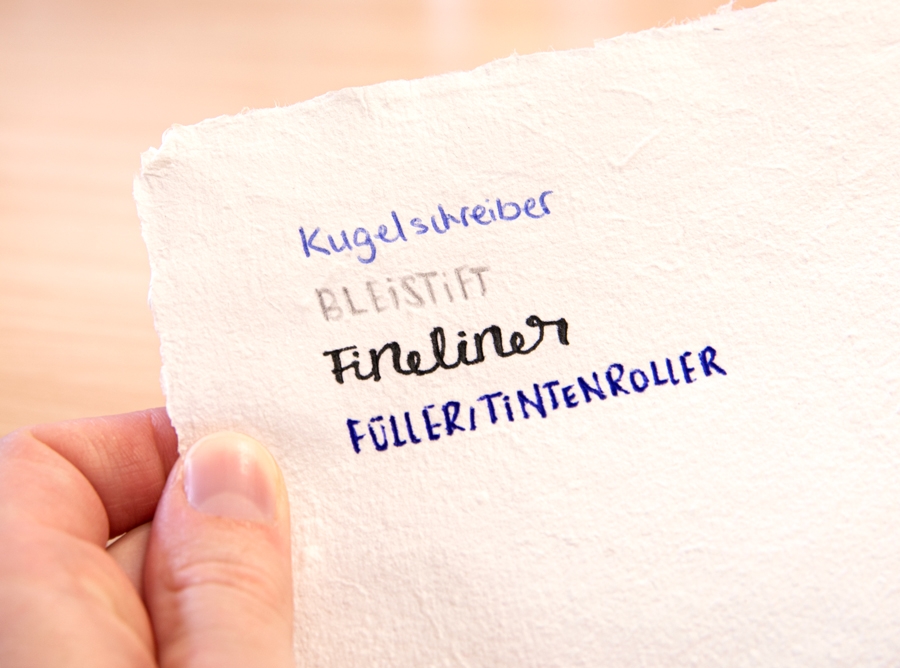 Kugelschreiber
BLEiSTiFT
Fineliner
FÜLLER/TiNTENROLLER